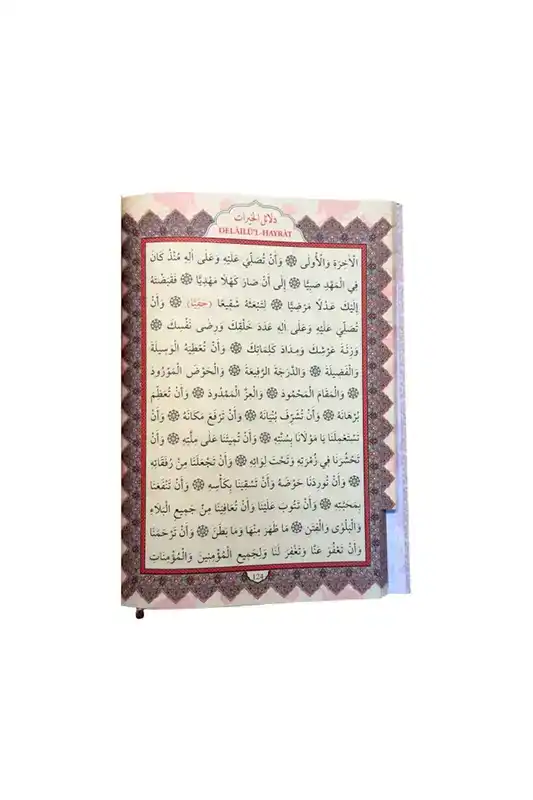 دلائل الخيرات
DELÂİLÜ'L-HAYRÂT
الْآخِرَةِ وَالْأُولَى ۞ وَأَنْ تُصَلِّيَ عَلَيْهِ وَعَلَى اٰلِهِ مُنْذُ كَانَ
فِي الْمَهْدِ صَبِيًّا ۞ إِلَى أَنْ صَارَ كَهْلًا مَهْدِيًّا ۞ فَقَبَضْتَهُ
إِلَيْكَ عَدْلًا مَرْضِيًّا ۞ لِتَبْعَثَهُ شَفِيعًا (حَفِيًّا) ۞ وَأَنْ
تُصَلِّيَ عَلَيْهِ وَعَلَى اٰلِهِ عَدَدَ خَلْقِكَ وَرِضَى نَفْسِكَ ۞
وَزِنَةَ عَرْشِكَ وَمِدَادَ كَلِمَاتِكَ ۞ وَأَنْ تُعْطِيَهُ الْوَسِيلَةَ
وَالْفَضِيلَةَ ۞ وَالدَّرَجَةَ الرَّفِيعَةَ ۞ وَالْحَوْضَ الْمَوْرُودَ
۞ وَالْمَقَامَ الْمَحْمُودَ ۞ وَالْعِزَّ الْمَمْدُودَ ۞ وَأَنْ تُعَظِّمَ
بُرْهَانَهُ ۞ وَأَنْ تُشَرِّفَ بُنْيَانَهُ ۞ وَأَنْ تَرْفَعَ مَكَانَهُ ۞ وَأَنْ
تَسْتَعْمِلَنَا يَا مَوْلَانَا بِسُنَّتِهِ ۞ وَأَنْ تُمِيتَنَا عَلَى مِلَّتِهِ ۞ وَأَنْ
تَحْشُرَنَا فِي زُمْرَتِهِ وَتَحْتَ لِوَائِهِ ۞ وَأَنْ تَجْعَلَنَا مِنْ رُفَقَائِهِ
۞ وَأَنْ تُورِدَنَا حَوْضَهُ وَأَنْ تَسْقِيَنَا بِكَأْسِهِ ۞ وَأَنْ تَنْفَعَنَا
بِمَحَبَّتِهِ ۞ وَأَنْ تَتُوبَ عَلَيْنَا وَأَنْ تُعَافِيَنَا مِنْ جَمِيعِ الْبَلَاءِ
وَالْبَلْوَى وَالْفِتَنِ ۞ مَا ظَهَرَ مِنْهَا وَمَا بَطَنَ ۞ وَأَنْ تَرْحَمَنَا
وَأَنْ تَعْفُوَ عَنَّا وَتَغْفِرَ لَنَا وَلِجَمِيعِ الْمُؤْمِنِينَ وَالْمُؤْمِنَاتِ
124